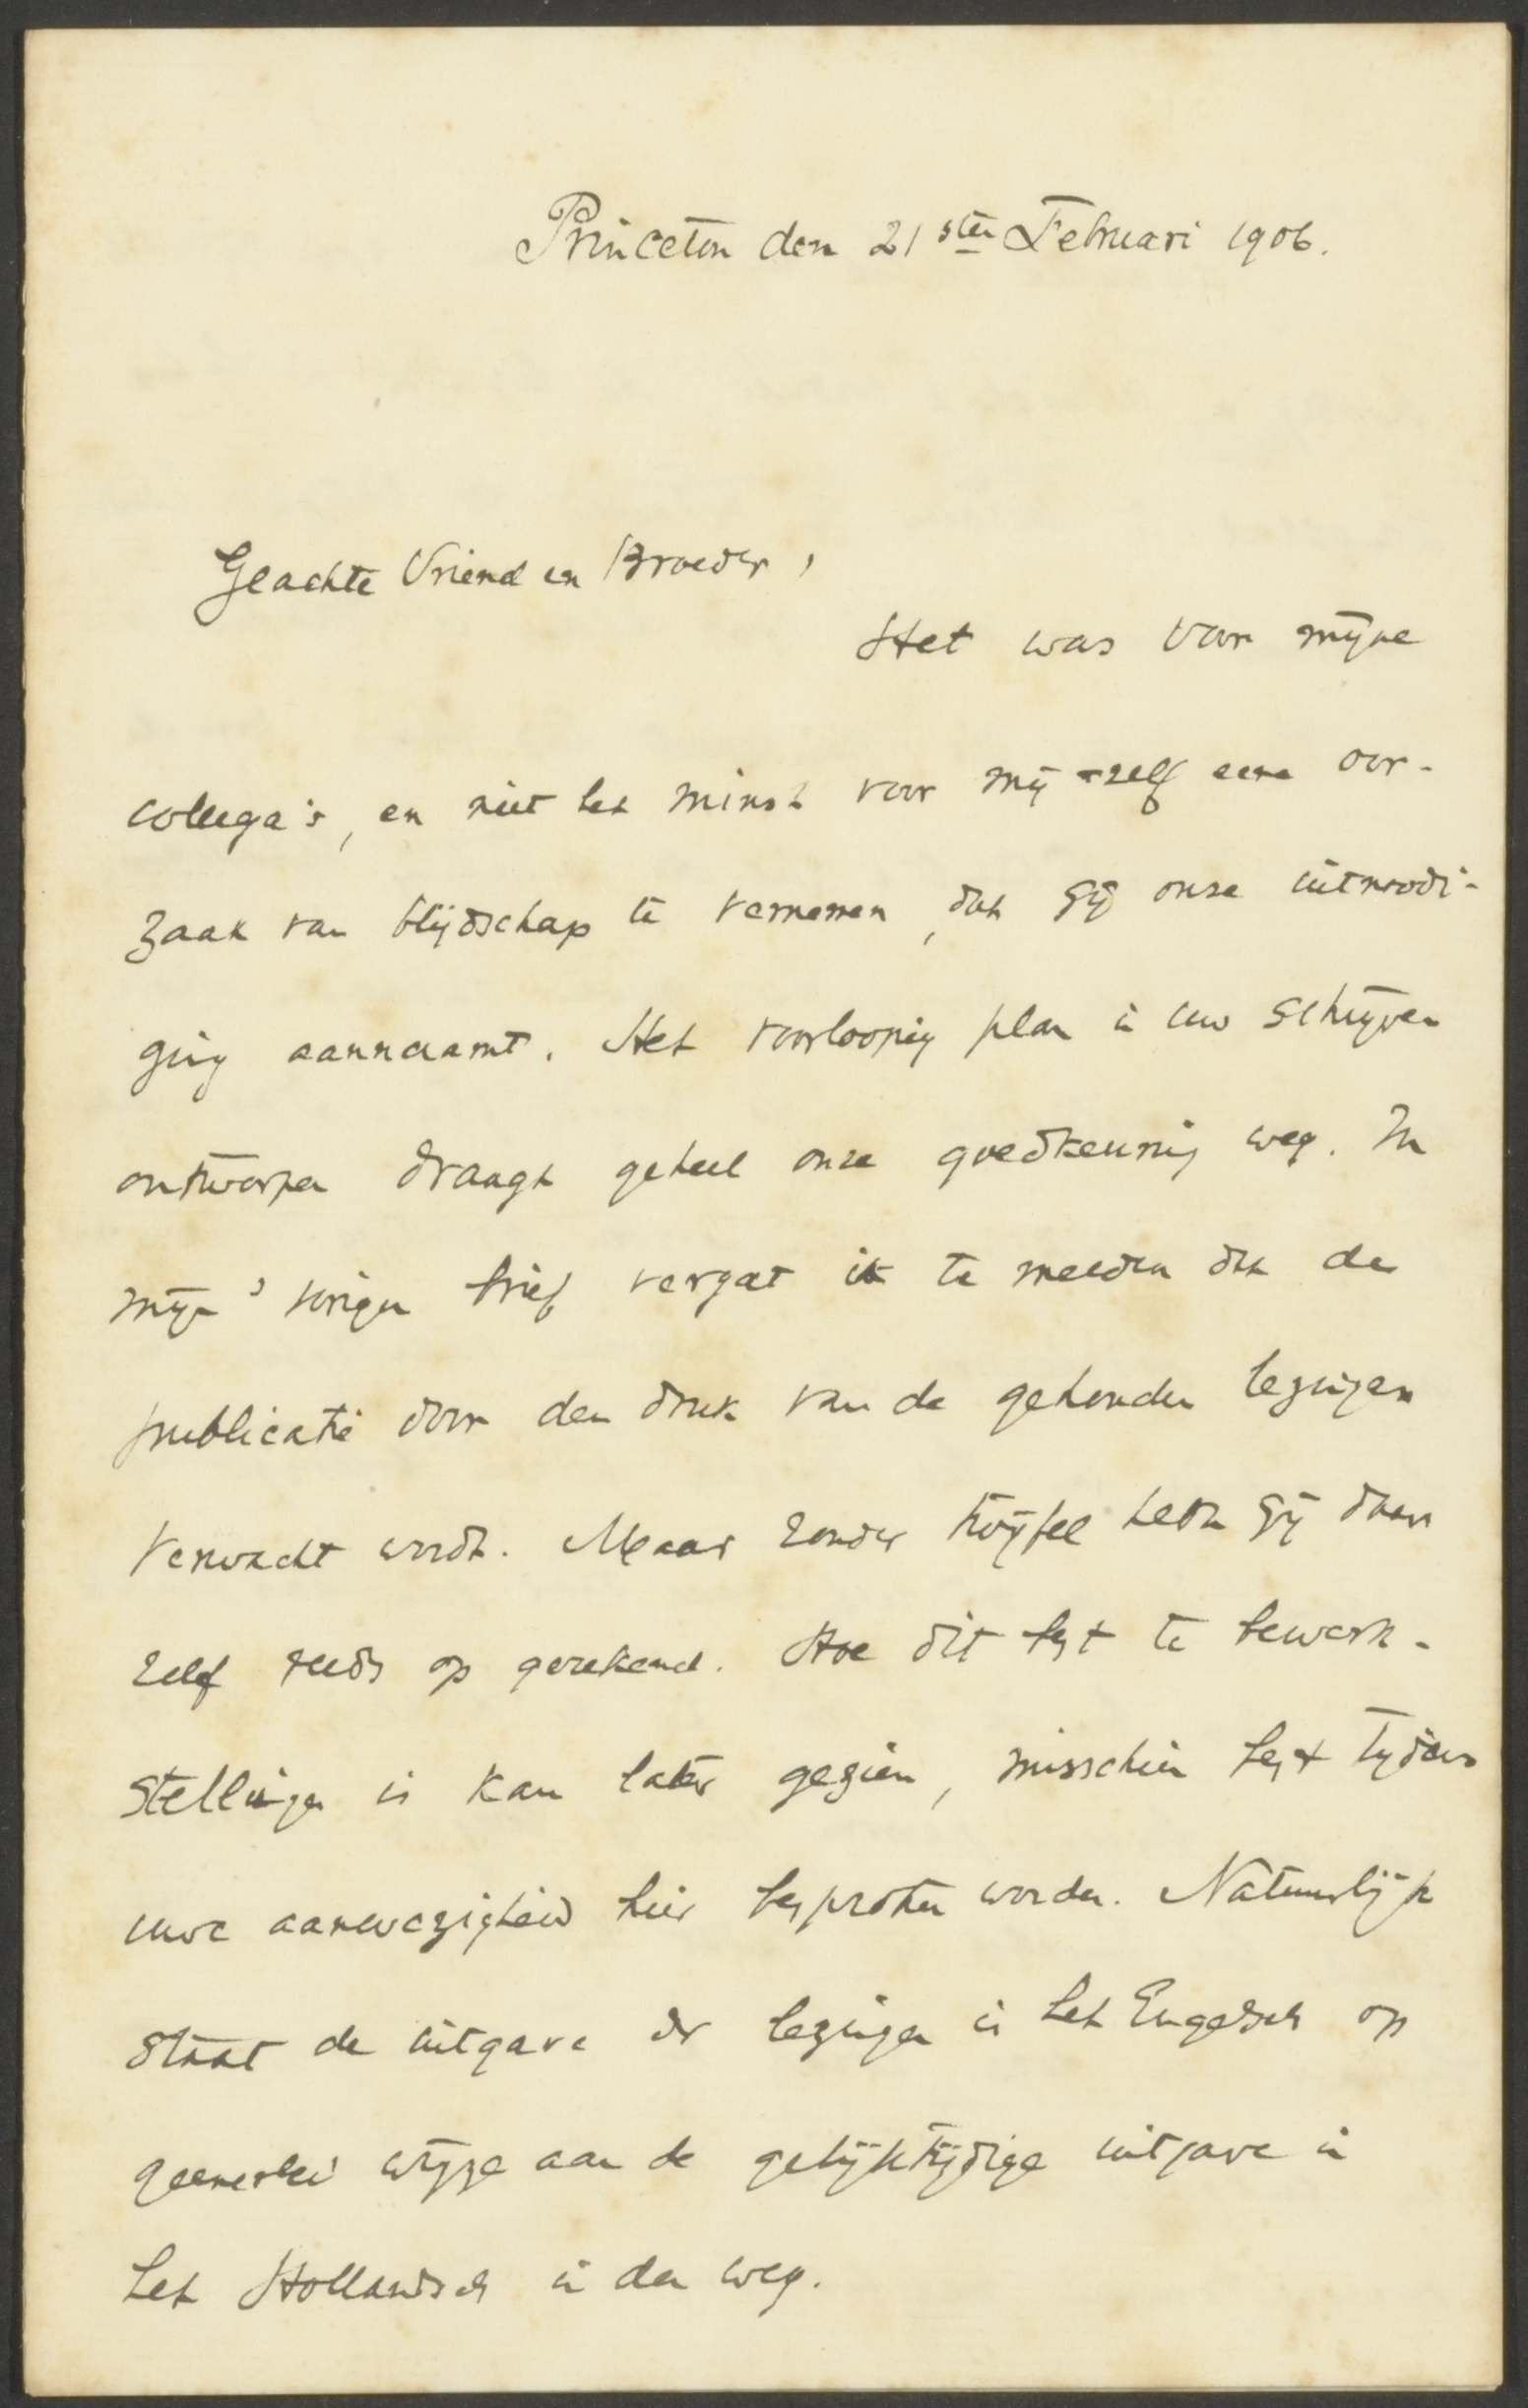 Princeton den 21sten Februari 1906.
Geachte Vriend en Broeder,
Het was voor mijne
collega's, en niet het minst voor mij-zelf eene oor-
zaak van blijdschap te vernemen, dat gij onze uitnoodi-
ging aannaamt. Het voorloopig plan in uw schrijven
ontworpen draagt geheel onze goedkeuring weg. In
mijn' vorigen brief vergat ik te melden dat de
publicatie door den druk van de gehouden lezingen
verwacht wordt. Maar zonder twijfel hebt gij daar
zelf reeds op gerekend. Hoe dit best te bewerk-
stelligen is kan later gezien, misschien best tijdens
uwe aanwezigheid hier besproken worden. Natuurlijk
staat de uitgave der lezingen in het Engelsch op
geenerlei wijze aan de gelijktijdige uitgave in
het Hollandsch in den weg.